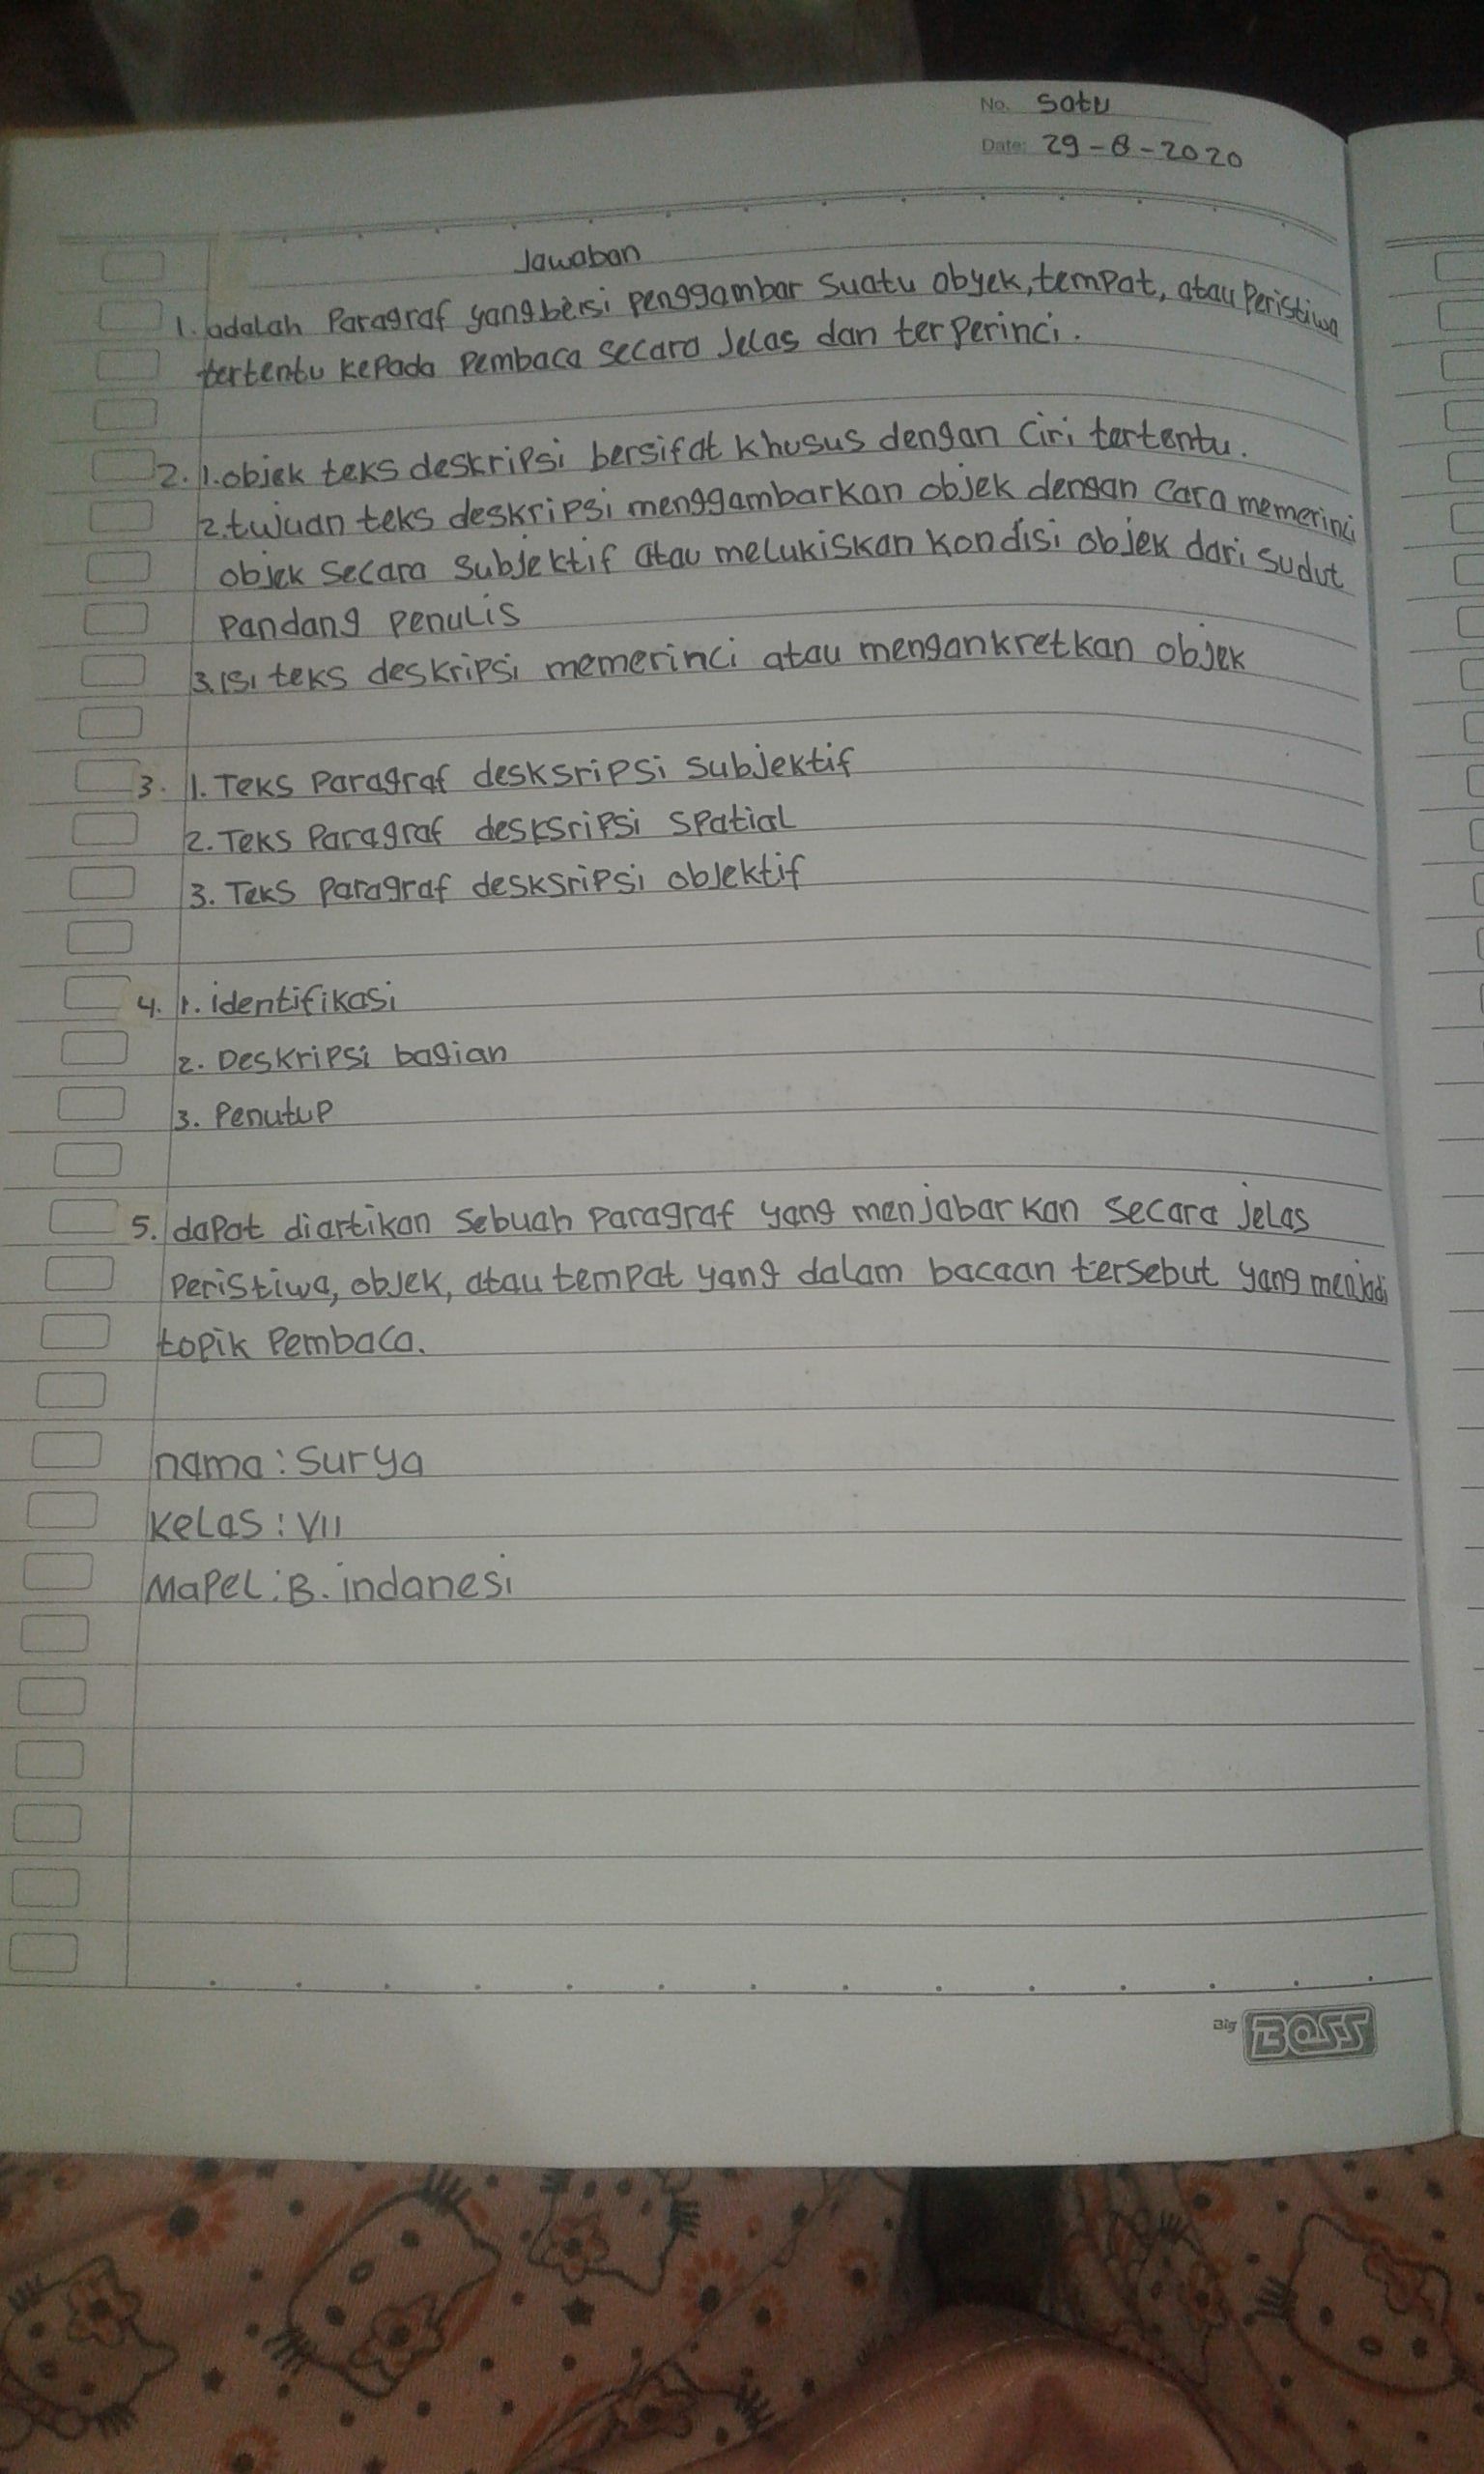 No. Satu
Date: 29-8-2020
Jawaban
1. adalah Paragraf yang beisi penggambar Suatu obyek, tempat, atau Peristiwa
tertentu kepada pembaca secara jelas dan terperinci.
2. 1. objek teks deskripsi bersifat khusus dengan Ciri tertentu.
2. tujuan teks deskripsi menggambarkan objek dengan Cara memerinci
objek Secara Subjektif atau melukiskan kondisi objek dari sudut
pandang penulis
3. isi teks deskripsi memerinci atau mengankretkan objek
3. 1. Teks Paragraf desksripsi subjektif
2. Teks Paragraf desksripsi spatial
3. Teks paragraf desksripsi objektif
4. 1. identifikasi
2. Deskripsi bagian
3. Penutup
5. dapat diartikan sebuah paragraf yang menjabarkan secara jelas
peristiwa, objek, atau tempat yang dalam bacaan tersebut yang menjadi
topik Pembaca.
nama : Surya
Kelas : VII
Mapel : B. indanesi
Big BOSS